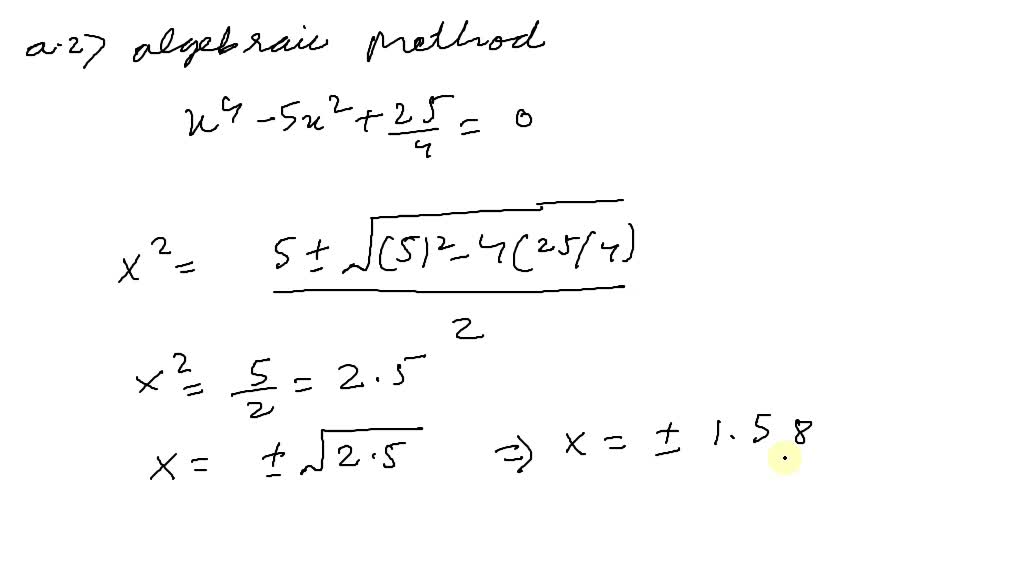 a.2) algebraic method
x⁴ - 5x² + 25/4 = 0
x² = (5 ± √((5)² - 4(25/4))) / 2
x² = 5/2 = 2.5
x = ± √2.5 ⇒ x = ± 1.58